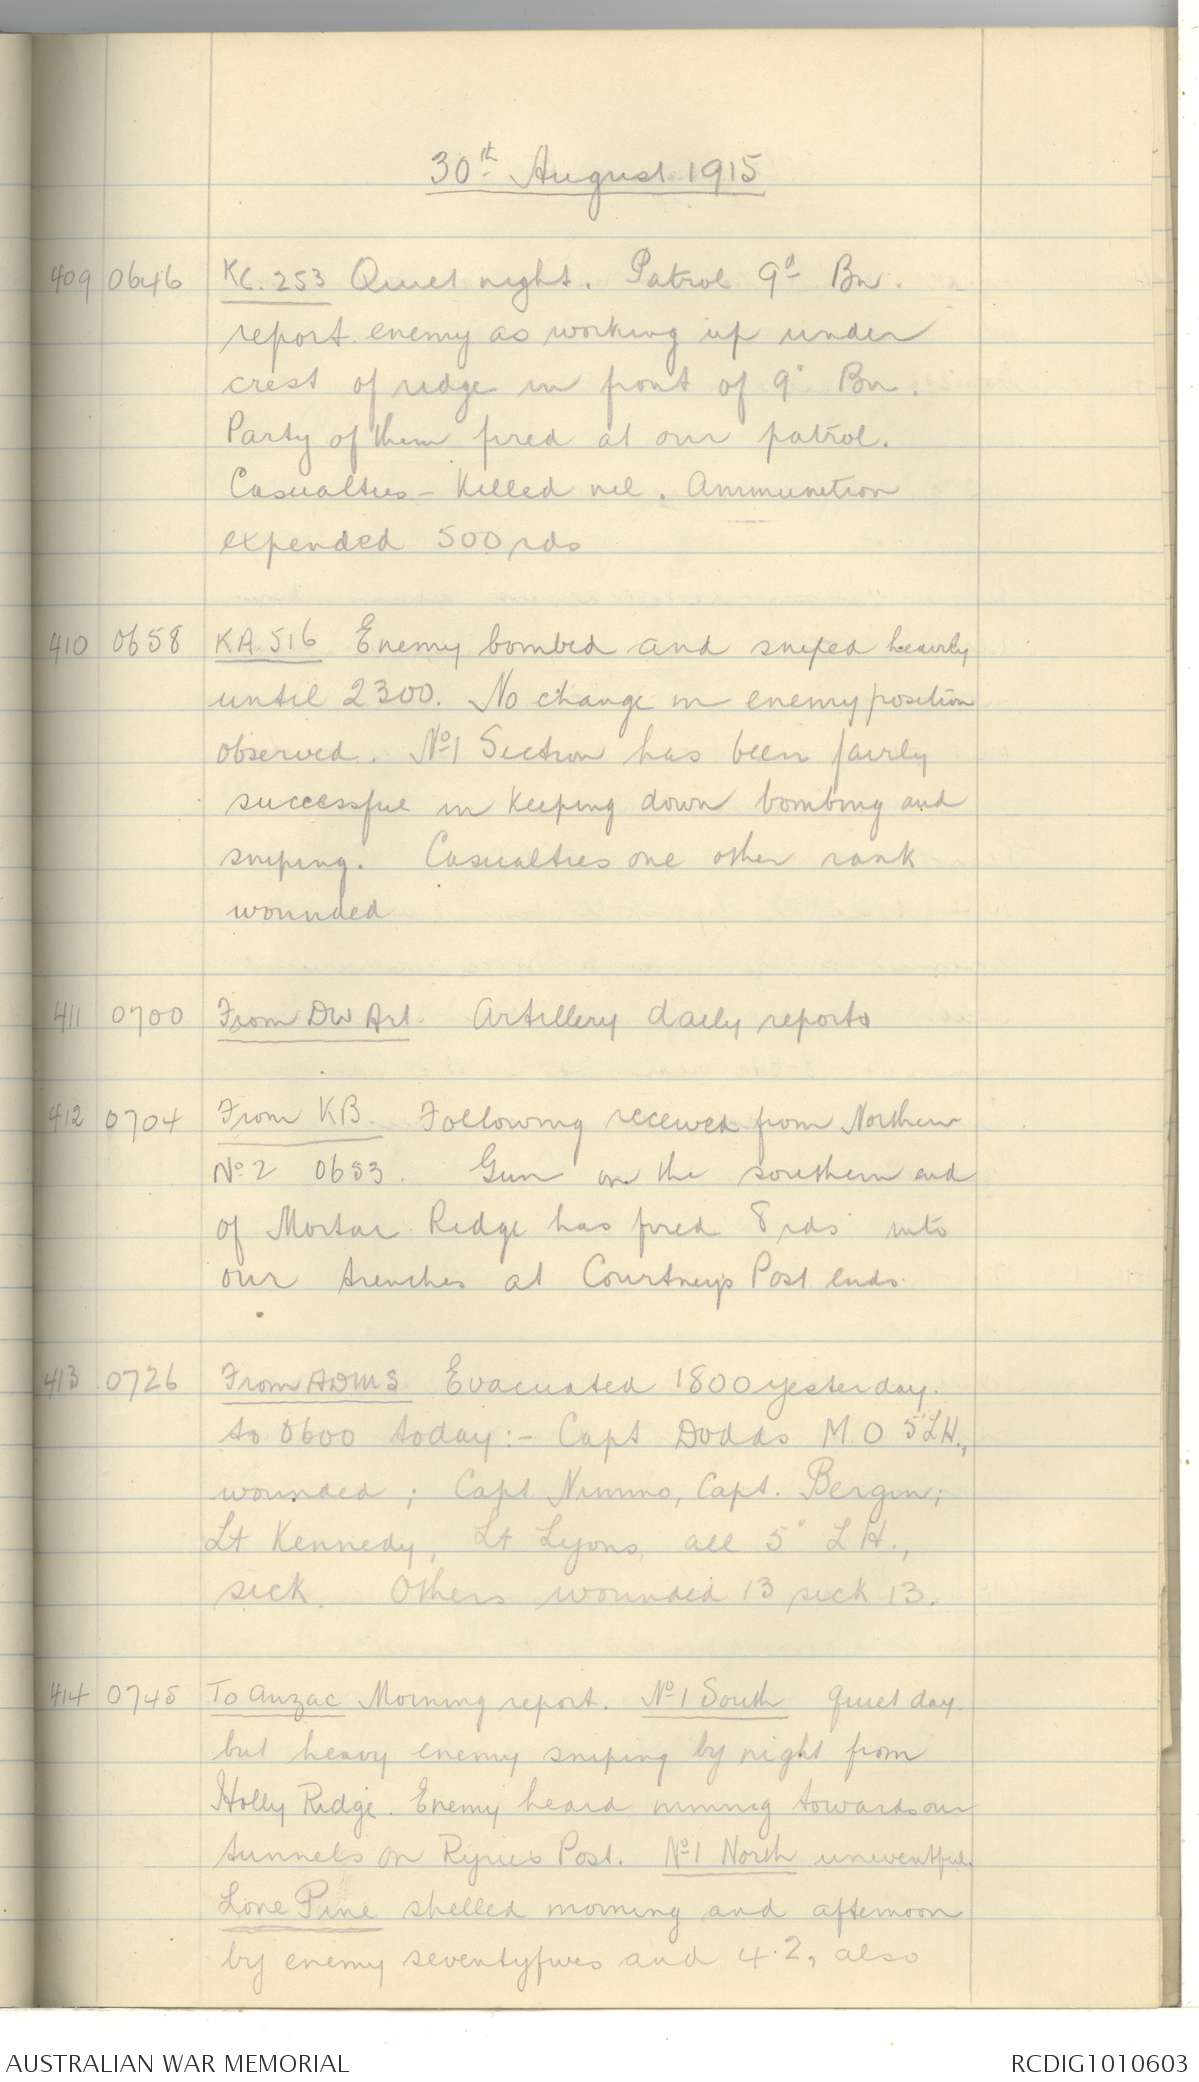 30th August 1915
409 0646 KC. 253 Quiet night. Patrol 9th Bn.
report enemy as working up under
crest of ridge in front of 9th Bn.
Party of them fired at our patrol.
Casualties - Killed nil. Ammunition
expended 500 rds
410 0658 KA 516 Enemy bombed and sniped heavily
until 2300. No change in enemy position
observed. No 1 Section has been fairly
successful in keeping down bombing and
sniping. Casualties one other rank
wounded
411 0700 From Div Art. Artillery daily reports
412 0704 From KB. Following received from Northern
No 2 0653. Gun on the southern end
of Mortar Ridge has fired 8 rds into
our trenches at Courtneys Post ends.
413 0726 From ADMS Evacuated 1800 yesterday
to 0600 today:- Capt Dodds M.O 5 LH.,
wounded; Capt Nimmo, Capt. Bergin;
Lt Kennedy, Lt Lyons, all 5 L H.,
sick. Others wounded 13 sick 13.
414 0745 To Anzac Morning report. No 1 South quiet day
but heavy enemy sniping by night from
Holly Ridge. Enemy heard mining towards our
tunnels on Ryries Post. No 1 North uneventful.
Lone Pine shelled morning and afternoon
by enemy seventyfives and 4.2, also
AUSTRALIAN WAR MEMORIAL
RCDIG1010603